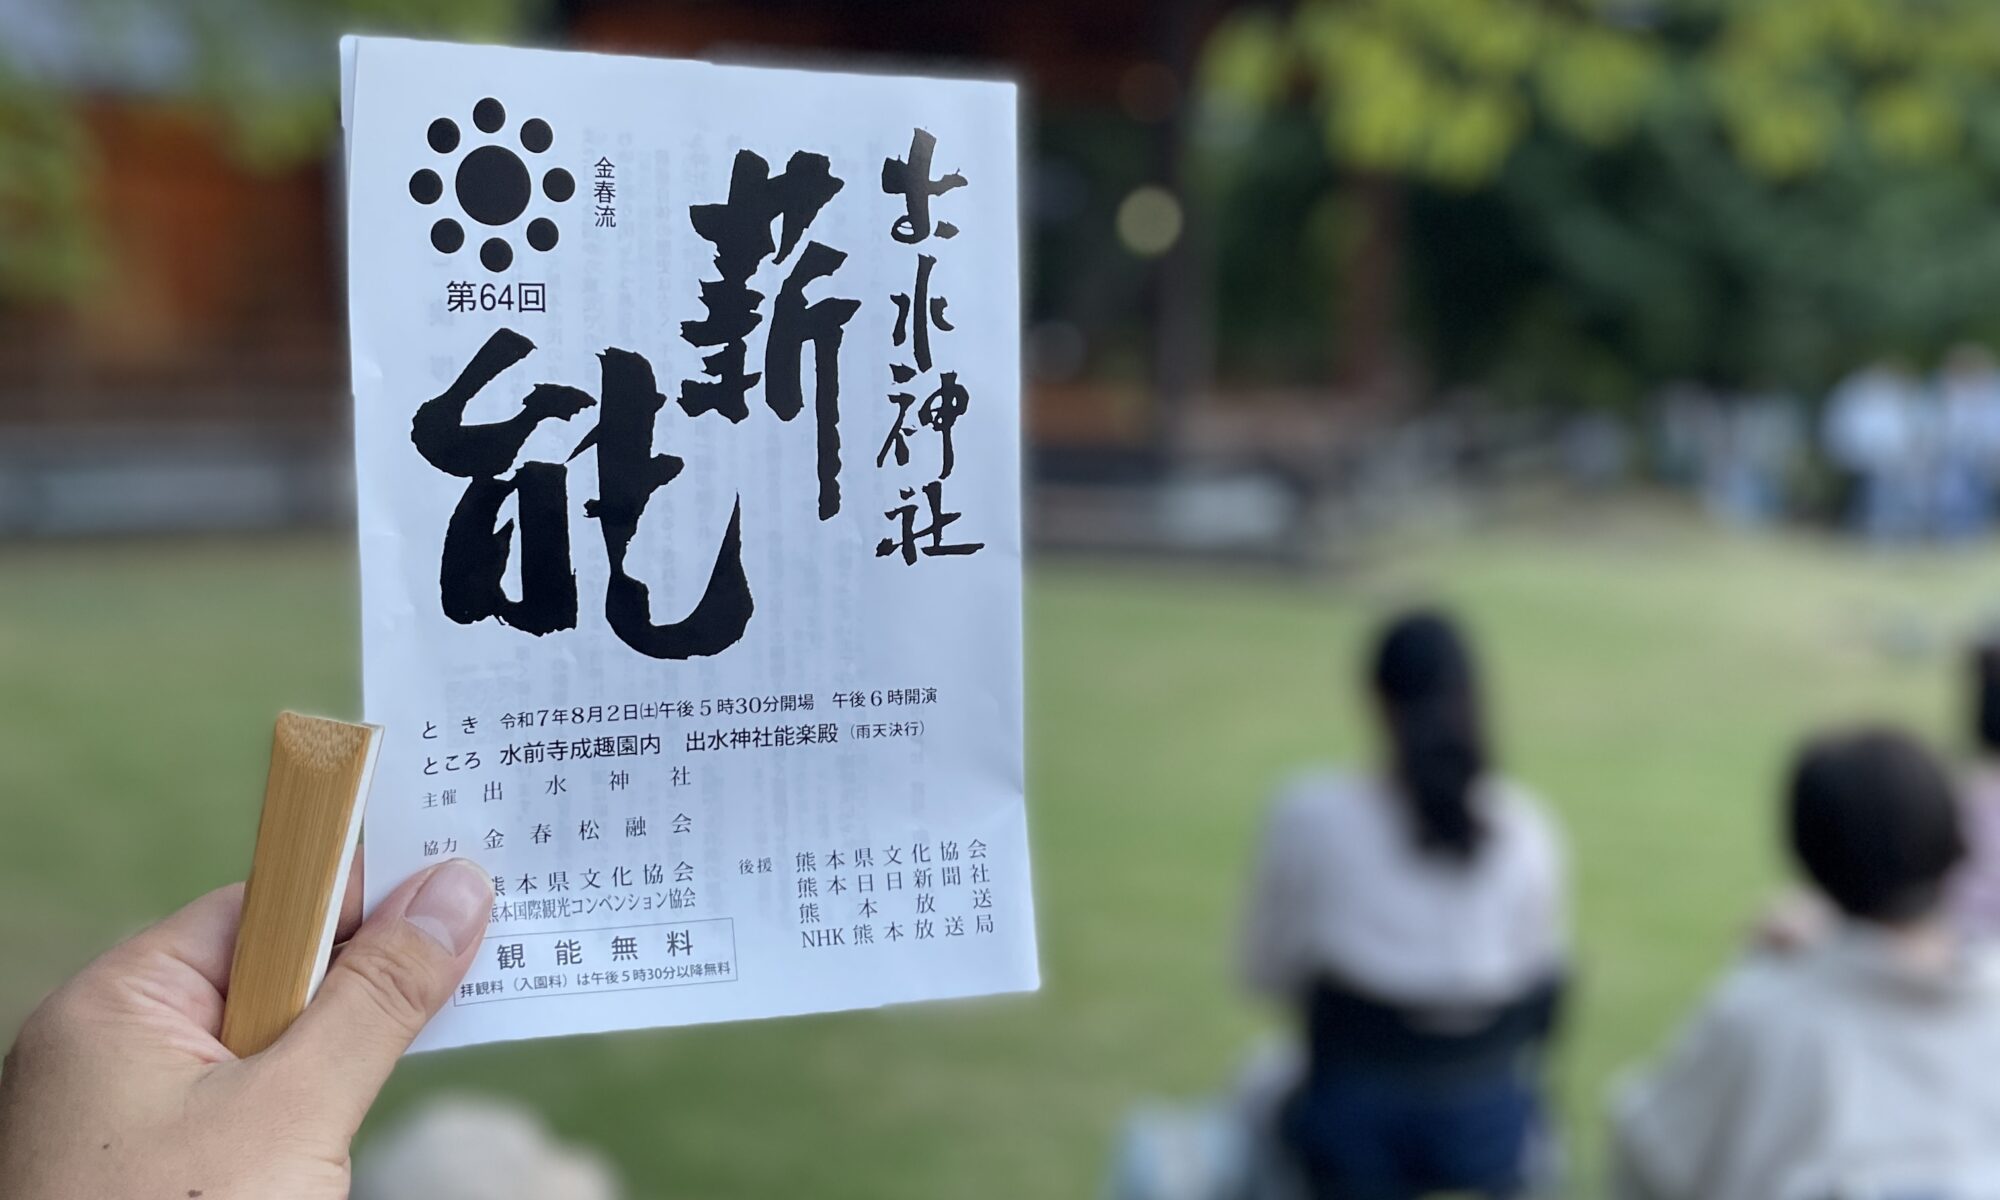 出水神社
薪能
金春流
第64回
とき 令和7年8月2日㈯午後5時30分開場 午後6時開演
ところ 水前寺成趣園内 出水神社能楽殿(雨天決行)
主催 出水神社
協力 金春松融会
熊本県文化協会
熊本国際観光コンベンション協会
後援 熊本県文化協会
熊本日日新聞社
熊本放送
NHK熊本放送局
観能無料
拝観料(入園料)は午後5時30分以降無料